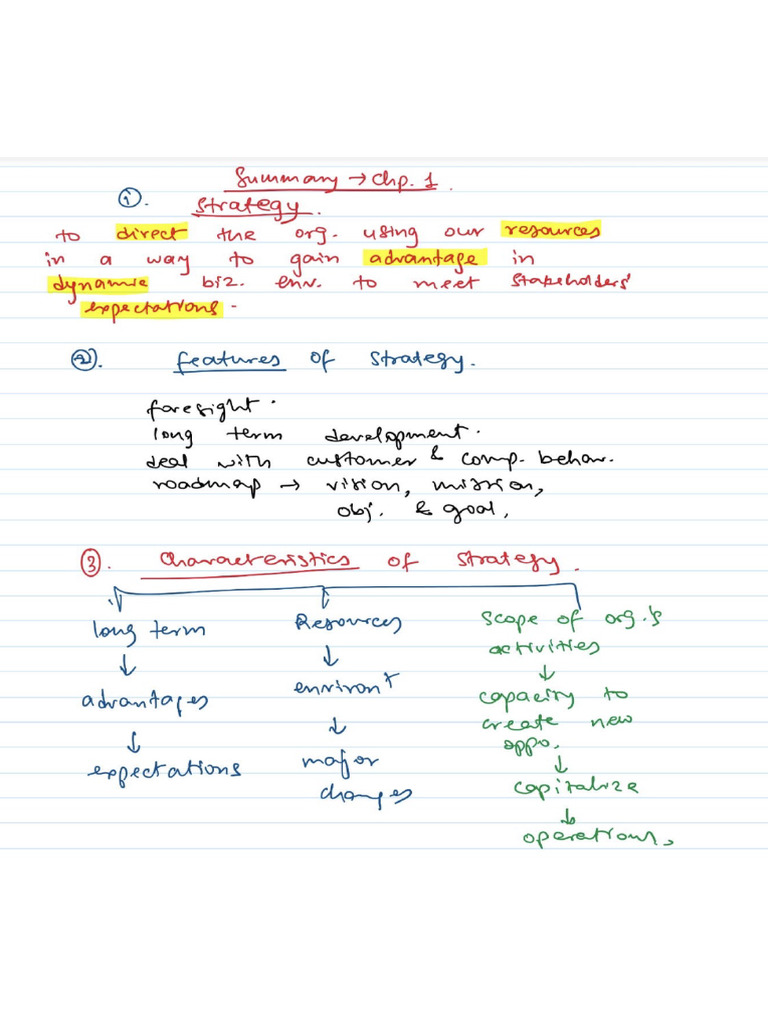 Summary → Chp. 1.
①. Strategy.
to direct the org. using our resources
in a way to gain advantage in
dynamic biz. env. to meet stakeholders'
expectations.
②. features of strategy.
foresight.
long term development.
deal with customer & comp. behav.
roadmap → vision, mission,
obj. & goal.
③. Characteristics of strategy.
long term
↓
advantages
↓
expectations
Resources
↓
environt
↓
major
changes
scope of org.'s
activities
↓
capacity to
create new
oppo.
↓
capitalize
↓
operations.